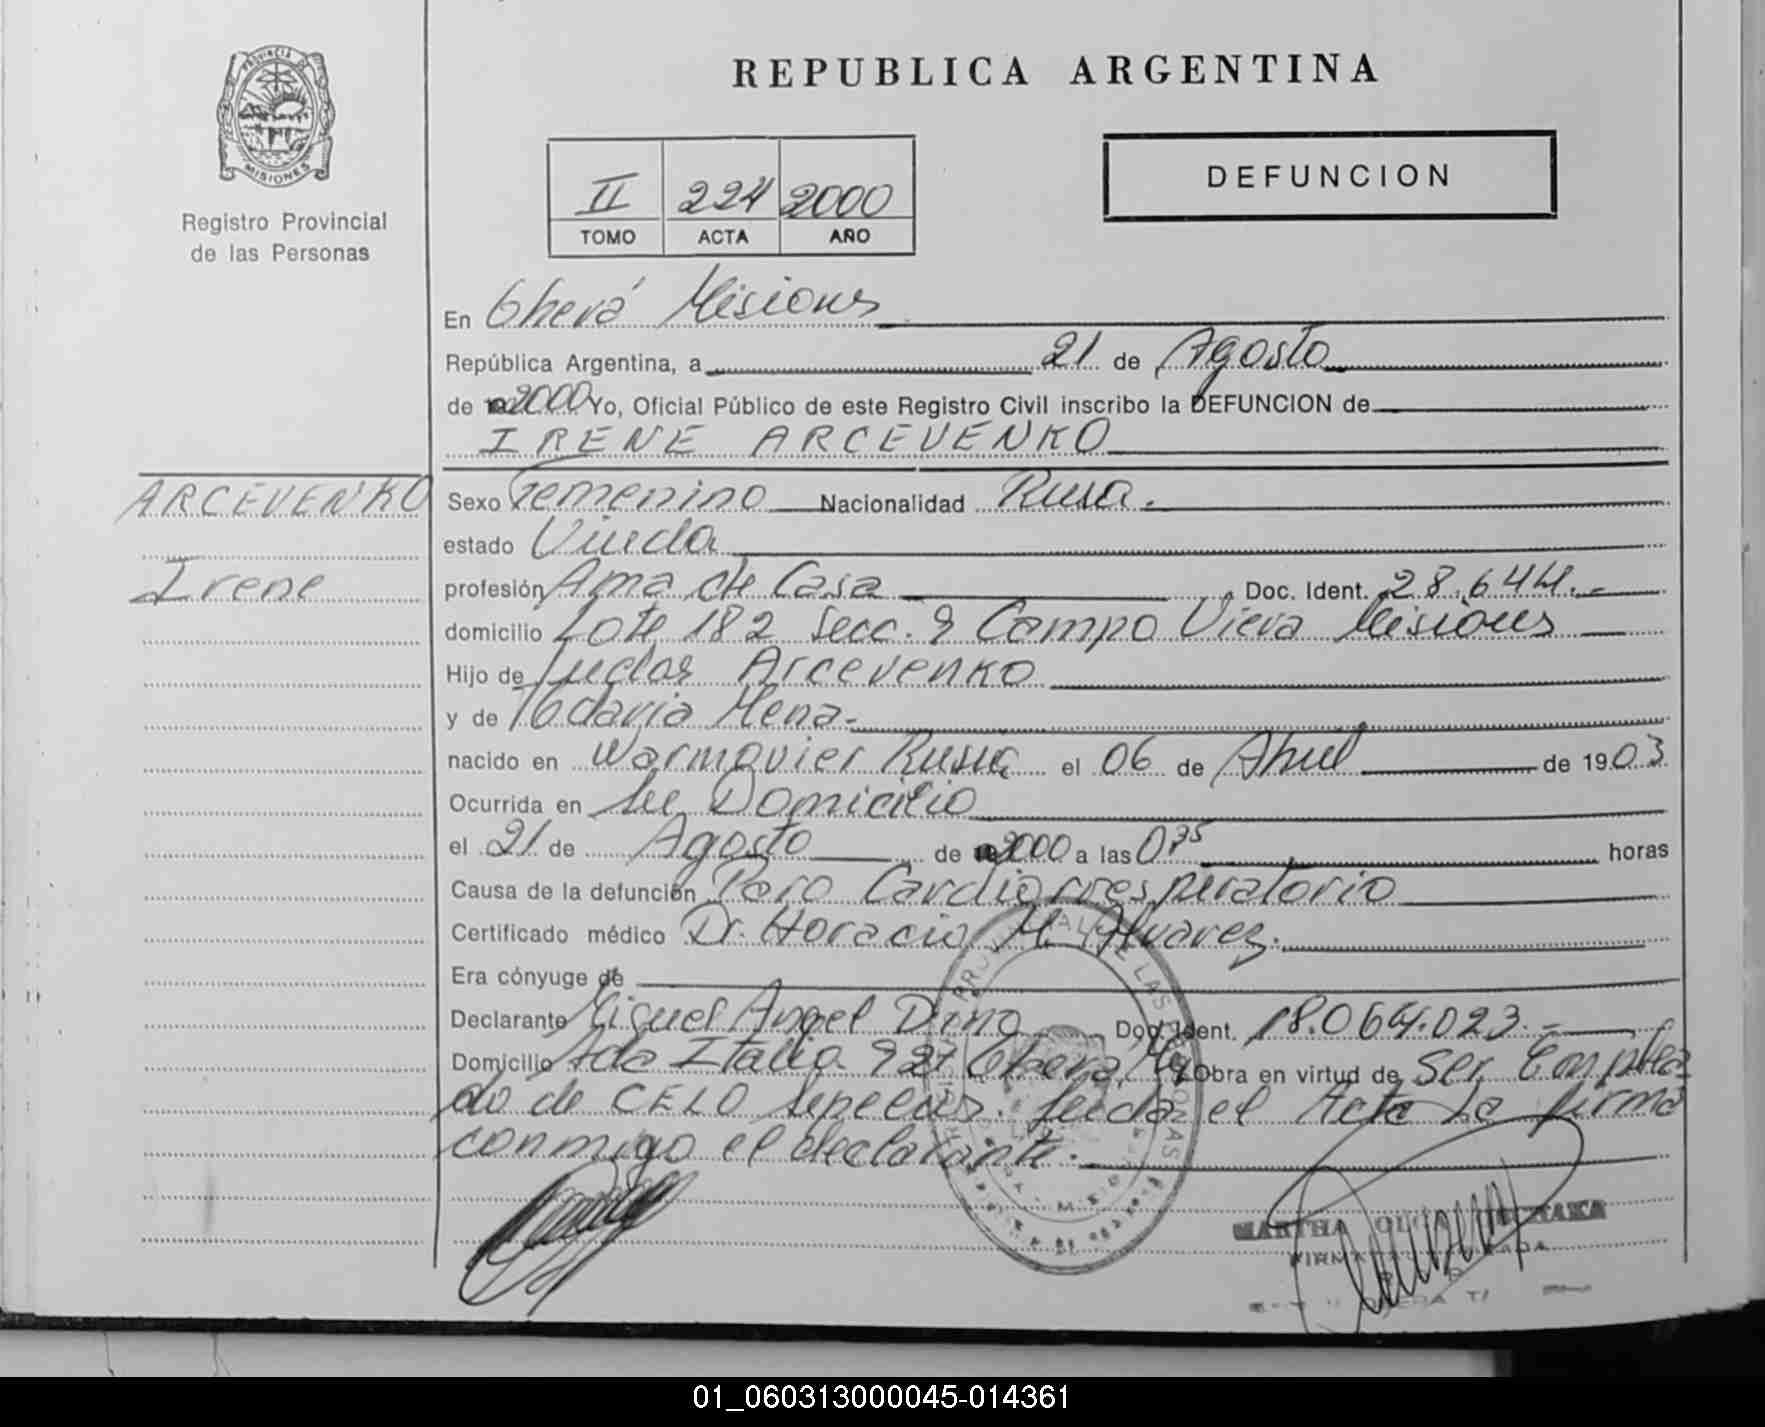 PROVINCIA DE
MISIONES
Registro Provincial
de las Personas
REPUBLICA ARGENTINA
II 224 2000
TOMO ACTA AÑO
DEFUNCION
En Oberá Misiones
República Argentina, a 21 de Agosto
de 2000 Yo, Oficial Público de este Registro Civil inscribo la DEFUNCION de
IRENE ARCEVENKO
ARCEVENKO
Irene
Sexo Femenino Nacionalidad Rusa.
estado Viuda
profesión Ama de Casa Doc. Ident. 28.644.-
domicilio Lote 182 Secc. 9 Campo Viera Misiones
Hijo de Arcevenko
y de Todavia Mena.
nacido en Warmavier Rusia el 06 de Abril de 1903
Ocurrida en su Domicilio
el 21 de Agosto de 2000 a las horas
Causa de la defunción Paro Cardiorrespiratorio
Certificado médico Dr. Horacio M. Alvarez.
Era cónyuge de
Declarante Miguel Angel Doc. Ident. 18.064.023.-
Domicilio Avda Italia 927 Oberá Obra en virtud de ser Emplea
do de CELO Sepelios. Leida el Acta la firma
conmigo el declarante.
MARTHA
01_060313000045-014361